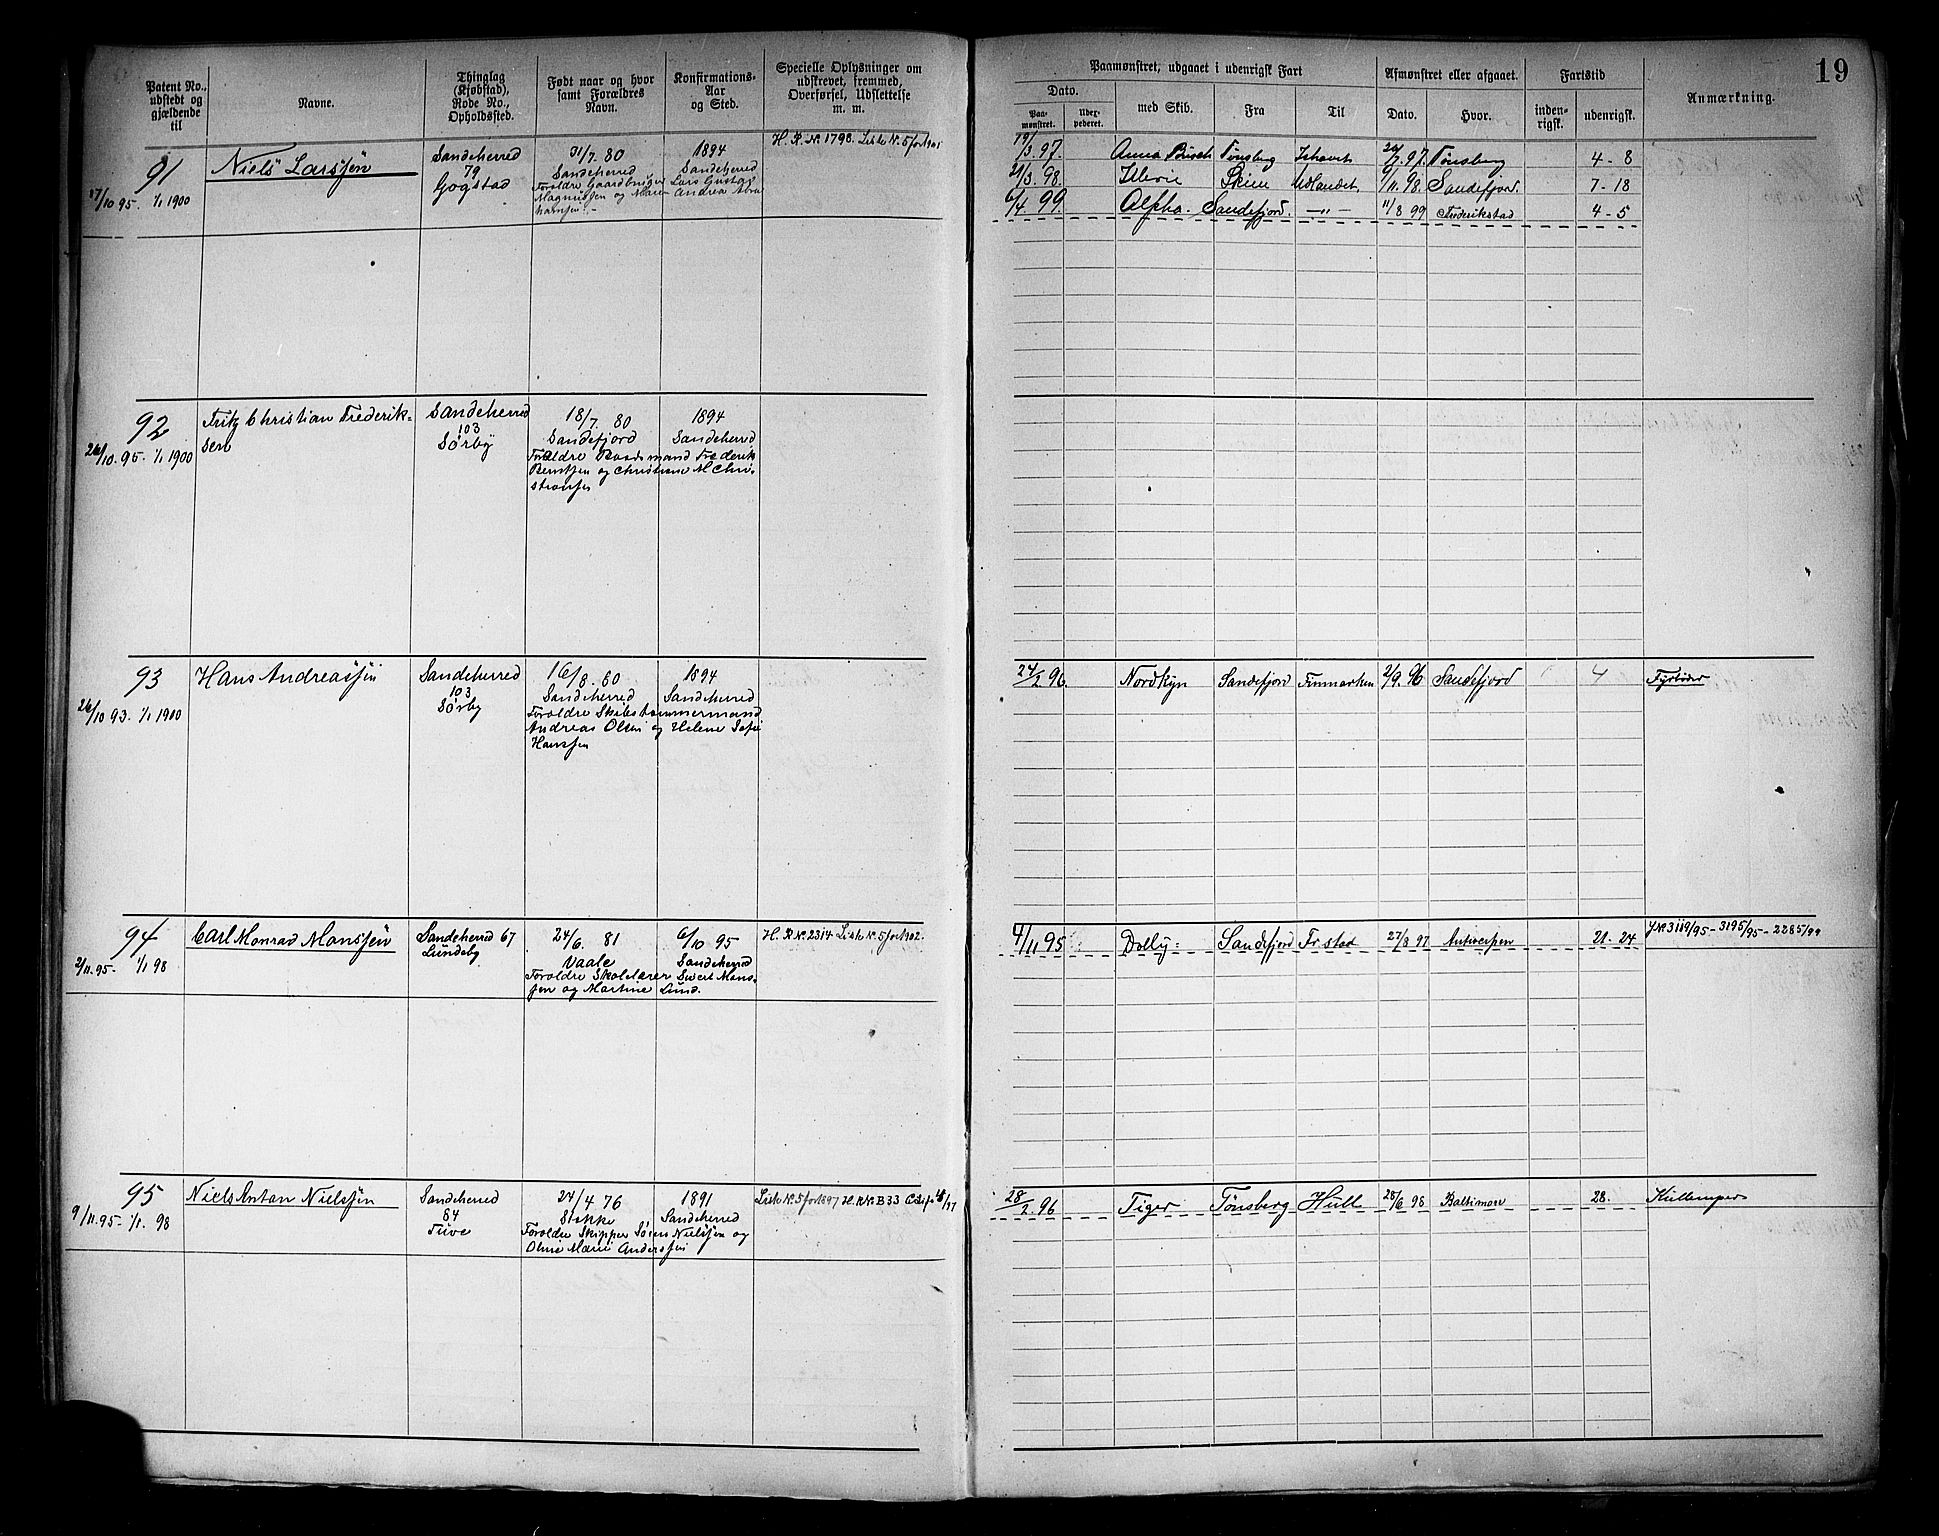 19
Patent No., udstedt og gjældende til
Navne.
Thinglag (Kjøbstad), Rode No., Opholdssted.
Født naar og hvor samt Forældres Navn.
Konfirmations-Aar og Sted.
Specielle Oplysninger om udskrevet, fremmed, Overførsel, Udslettelse m. m.
Paamønstret, udgaaet i udenrigsk Fart
Afmønstret eller afgaaet.
Fartstid
Anmærkning.
Dato.
Paamønstret.
Udexpederet.
med Skib.
Fra
Til
Dato.
Hvor.
indenrigsk.
udenrigsk.
91
17/10 95. 1/1 1900
Niels Larssen
Sandeherred
79
Gogstad
31/7. 80
Sandeherred
Foreldre Gaardbruger Lars Gustav
Magnussen og Maren Andrea Abra
hamsen. -
1894
Sandeherred
H. R. N. 1798. Liste N. 5 for 1901
19/3. 97. Anna Tønsberg Ishavet 97. Tønsberg 4 - 8
21/3. 98. Skien Udlandet. 11. 98. Sandefjord. 7 - 18
6/4 99. Alpha. Sandefjord. - " - 11/8 99 Frederikstad 4 - 5
92
26/10. 95. 1/1 1900
Fritz Christian Frederik-
sen
Sandeherred
103
Sørby
18/7. 80
Sandefjord
Foreldre Baadsmand Frederik
Berntsen og Christiane M Chri-
stiansen
1894
Sandeherred
93
26/10 93. 1/1 1900
Hans Andreassen
Sandeherred
103
Sørby
16/8. 80
Sandeherred
Foreldre Skibstømmermand
Andreas Olsen og Helene Sofie
Hanssen
1894
Sandeherred
24/2 96. Nordkyn Sandefjord Finmarken 2/9. 96 Sandefjord 4
94
2/11. 95- 1/1 98
Carl Monrad Monssen
Sandeherred 67
Lundeby
24/6. 81
Vaale
Foreldre Skolelærer Sivert Mons-
sen og Martine Lund.
6/10 95
Sandeherred
H. R. N. 2314 Liste N. 5 for 1902.
4/11 95 Dolly: Sandefjord Fr stad 27/8 97 Antwerpen 21 - 24
J. N. 3119/95 - 3195/95 - 2285/99
95
9/11. 95- 1/1. 98
Niels Anton Nielsen
Sandeherred
64
Tuve
24/4 76
Stokke
Foreldre Skipper Søren Nielsen og
Oline Marie Anderssen
1891
Sandeherred
Liste N. 5 for 1897 H. R. N. B 33
28/2 96 Tiger Tønsberg Hull 28/6 98 Baltimore 28.
Kullemper